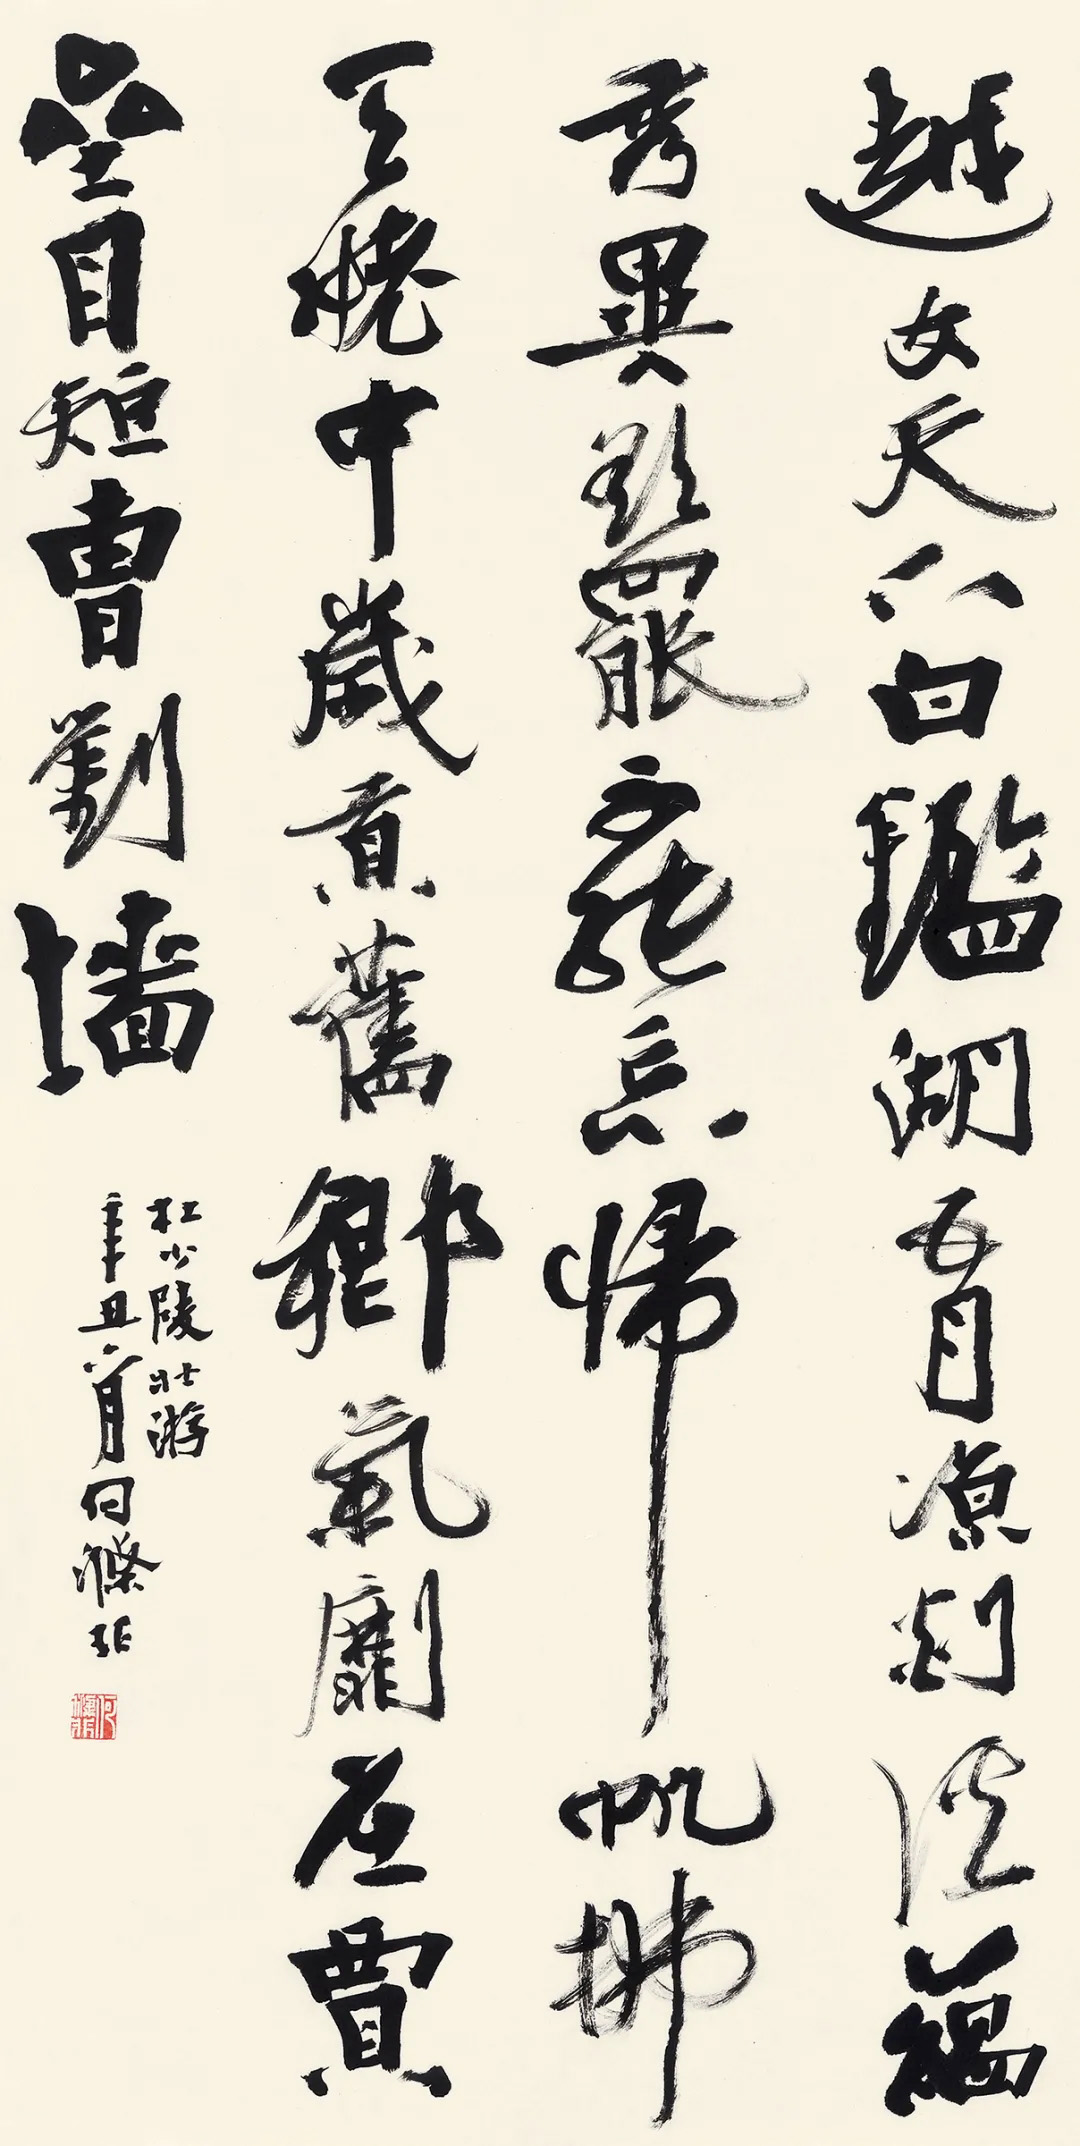 越女天下白鑑湖五月涼剡溪蘊
秀異欲罷不能忘歸帆拂
天姥中歲貢舊鄉氣劘屈賈
垒目短曹劉墻
杜少陵壯游
辛丑六月何滌非